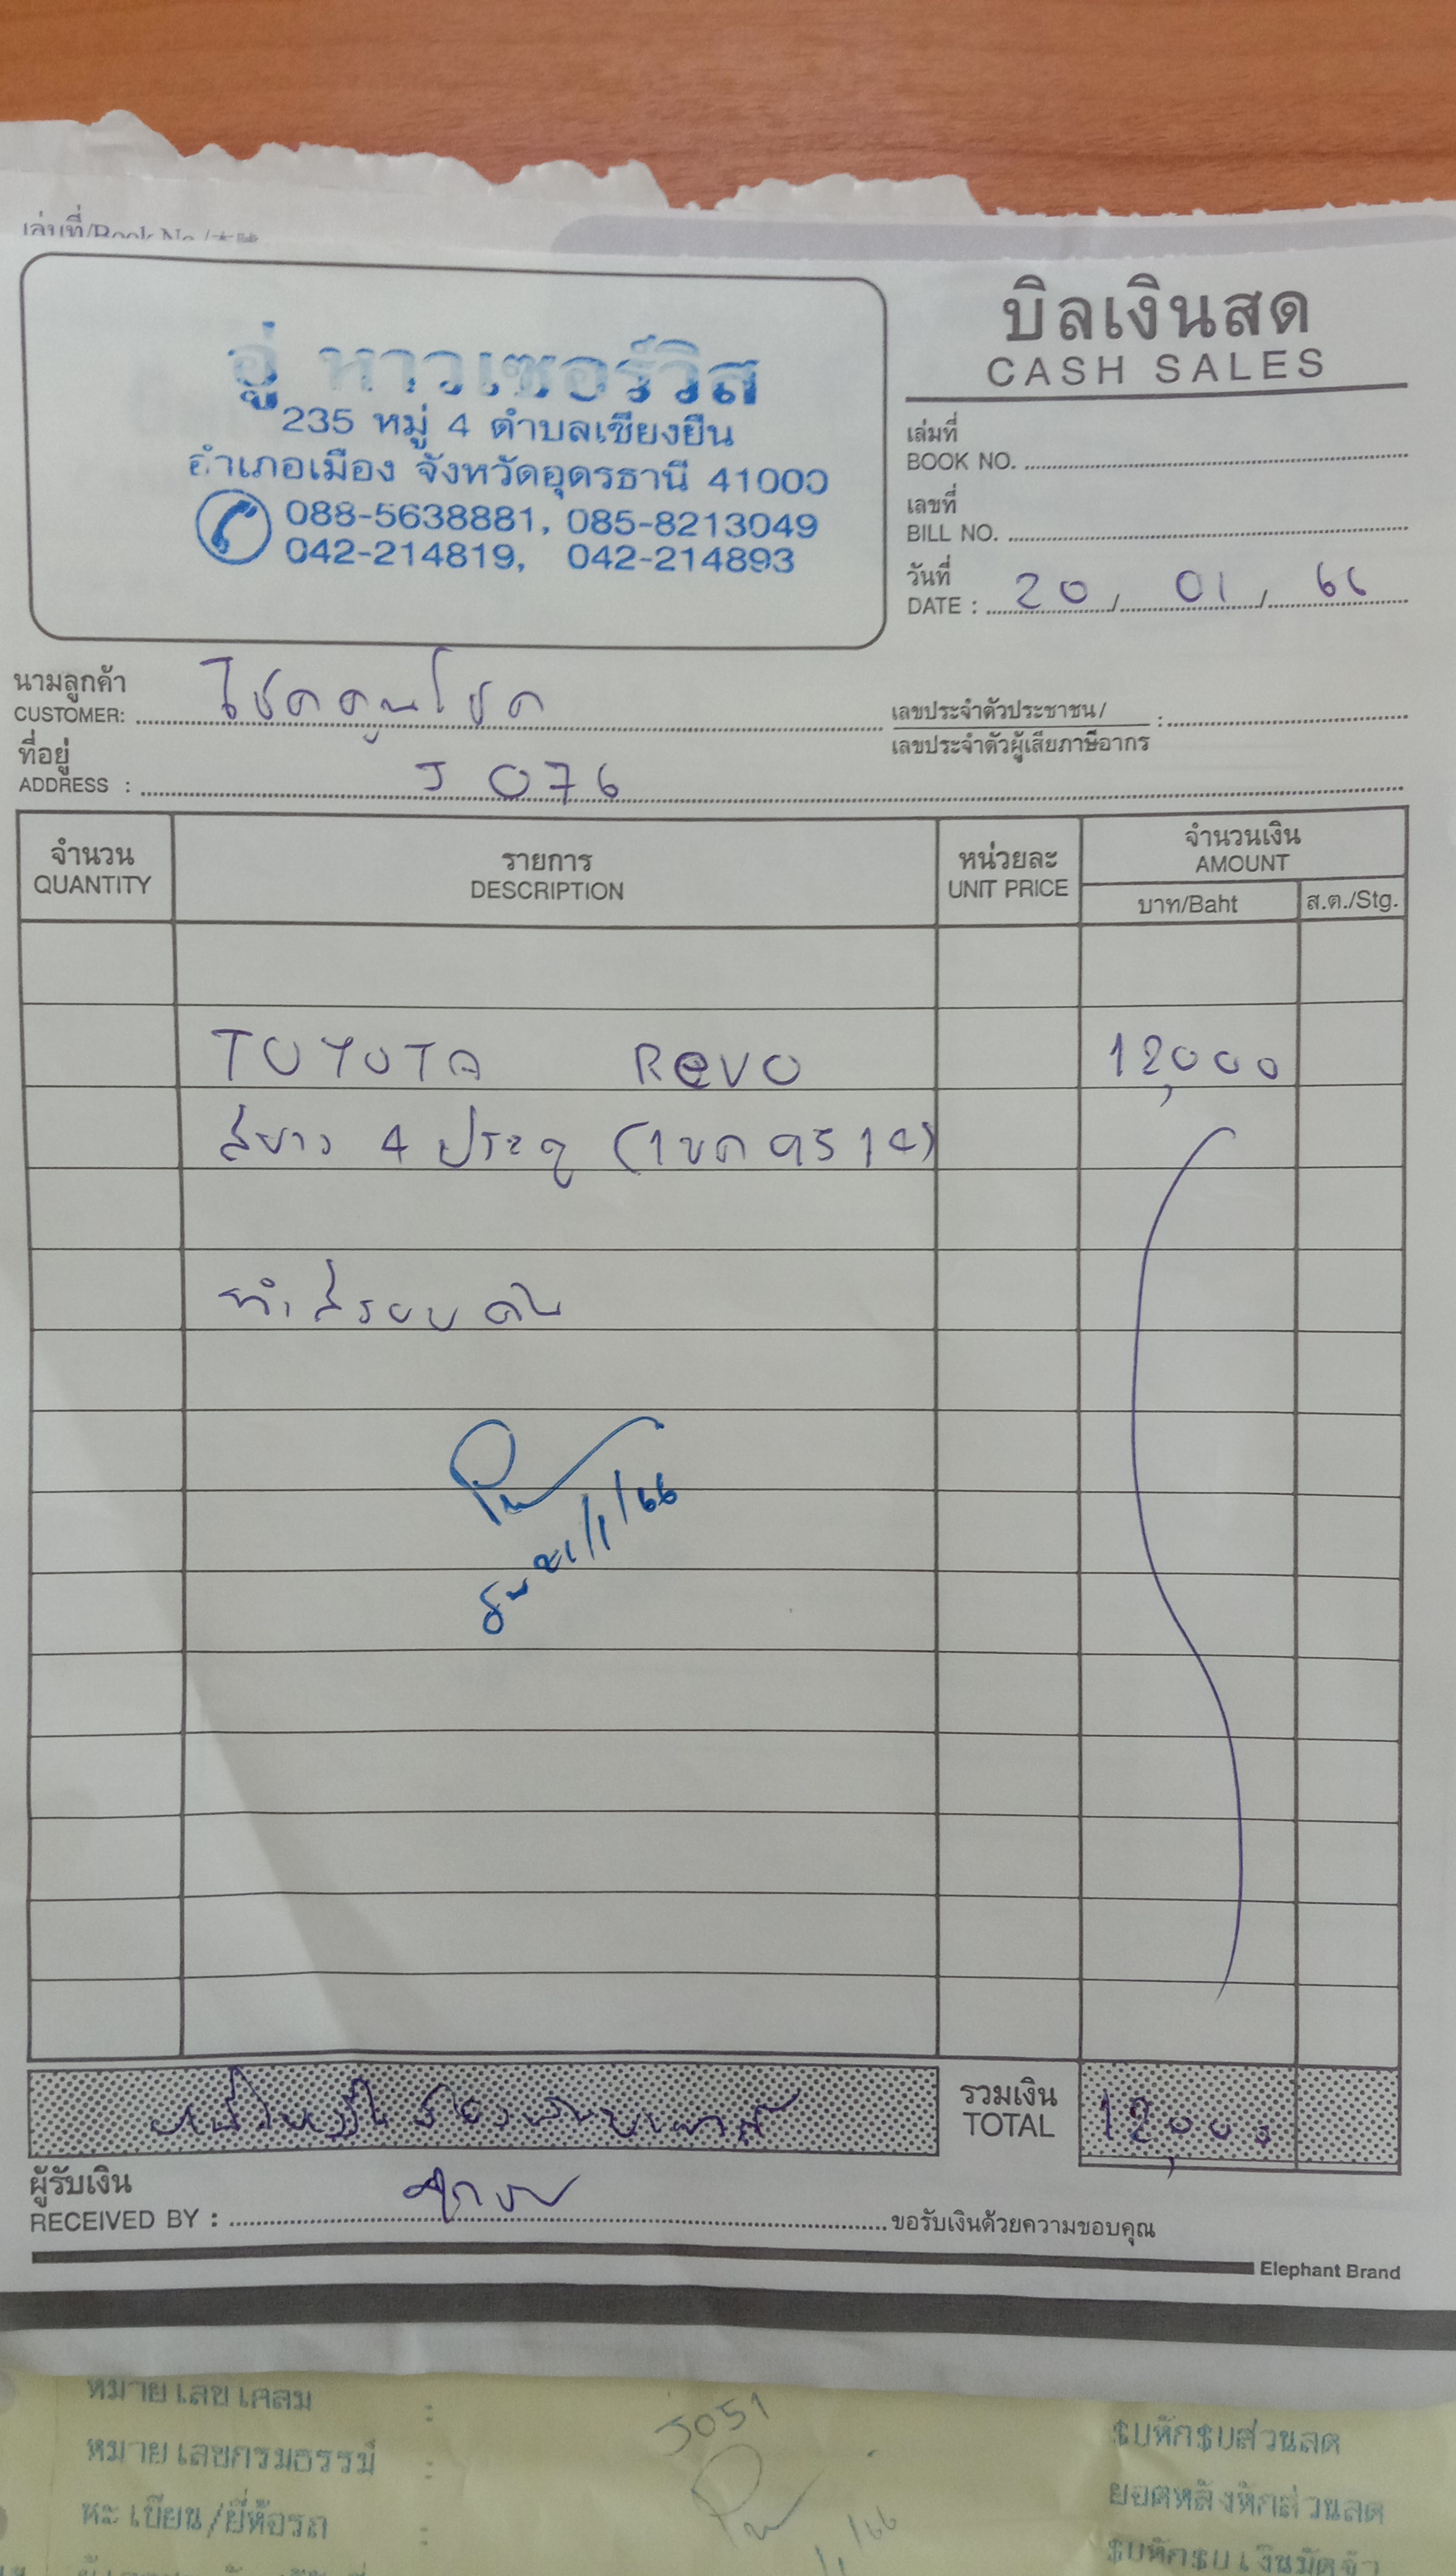 เล่มที่/Book No./本號
บิลเงินสด
CASH SALES
อู่ หาวเซอร์วิส
235 หมู่ 4 ตำบลเชียงยืน
อำเภอเมือง จังหวัดอุดรธานี 41000
088-5638881, 085-8213049
042-214819, 042-214893
เล่มที่
BOOK NO.
เลขที่
BILL NO.
วันที่
DATE : 20 / 01 / 66
นามลูกค้า
CUSTOMER: โชคคูณโชค
เลขประจำตัวประชาชน / :
เลขประจำตัวผู้เสียภาษีอากร
ที่อยู่
ADDRESS : J 076
จำนวน
QUANTITY
รายการ
DESCRIPTION
หน่วยละ
UNIT PRICE
จำนวนเงิน
AMOUNT
บาท/Baht ส.ต./Stg.
TOYOTA REVO 12,000
สีขาว 4 ประตู
ทำสีรอบคัน
21/1/66
หนึ่งหมื่นสองพันบาทถ้วน
รวมเงิน
TOTAL 12,000
ผู้รับเงิน
RECEIVED BY :
ขอรับเงินด้วยความขอบคุณ
Elephant Brand
หมายเลขเคลม :
J051
หมายเลขกรมธรรม์ :
ทะเบียน/ยี่ห้อรถ :
รับหักรับส่วนลด
ยอดหลังหักส่วนลด
รับหักรับเงินมัดจำ